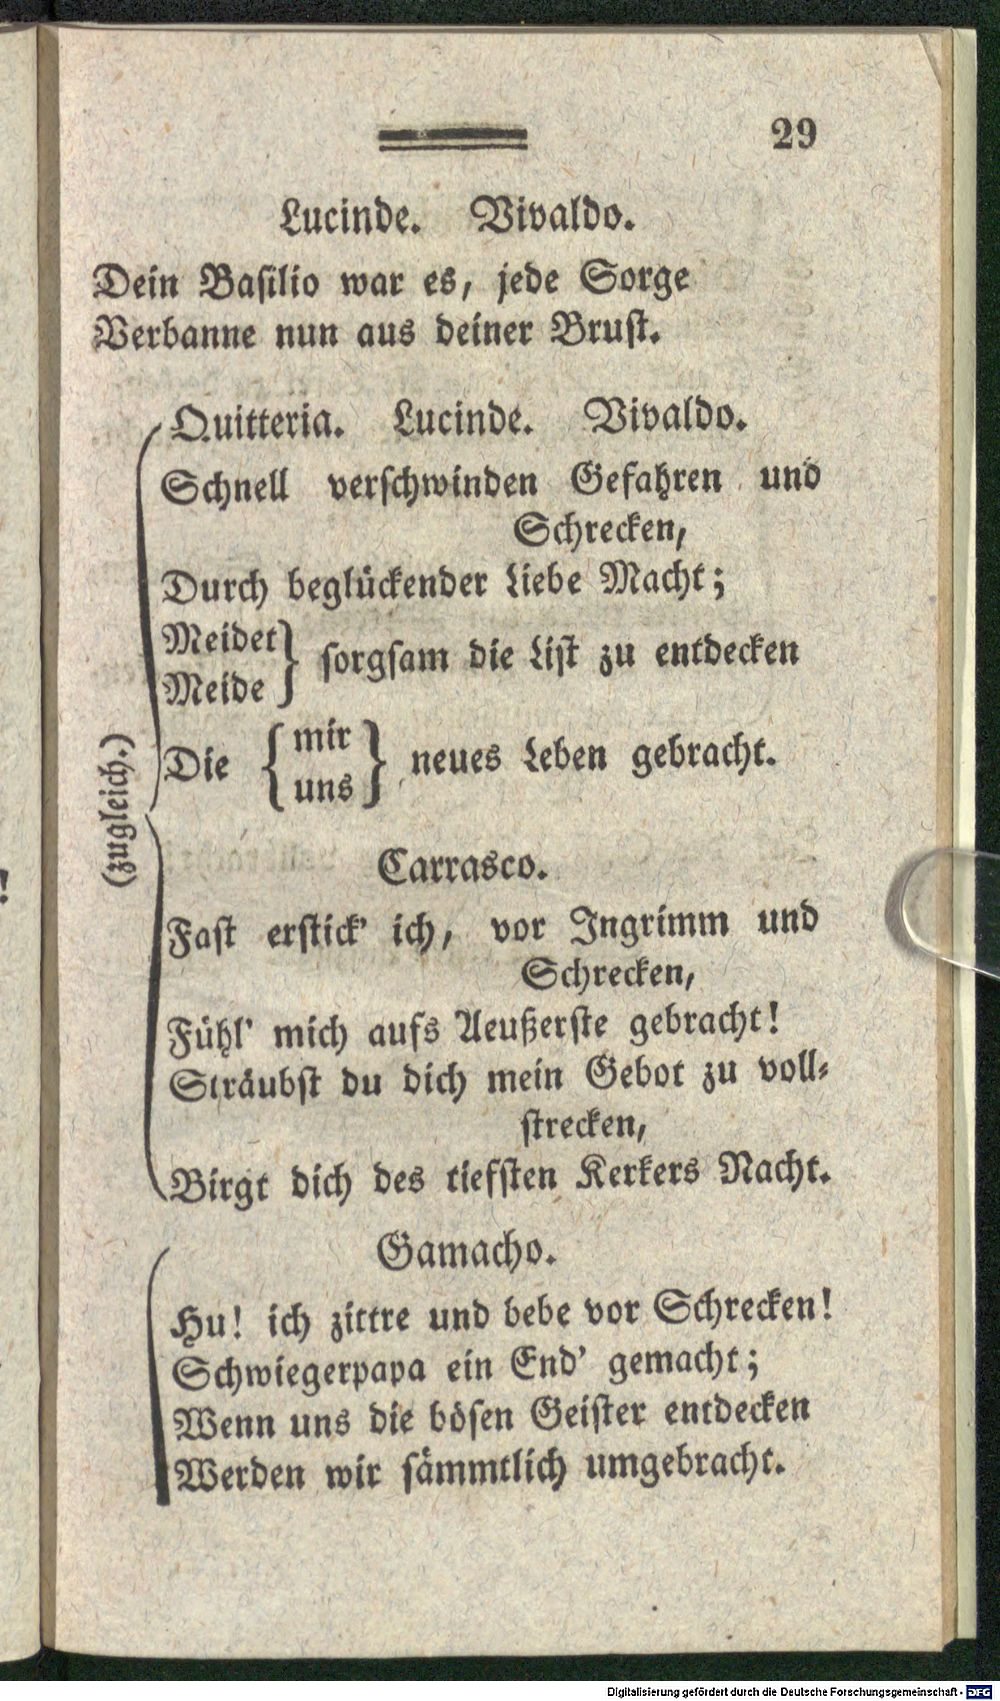 29
Lucinde. Vivaldo.
Dein Baſilio war es, jede Sorge
Verbanne nun aus deiner Bruſt.
Quitteria. Lucinde. Vivaldo.
Schnell verſchwinden Gefahren und
Schrecken,
Durch beglückender Liebe Macht;
Meidet
Meide } ſorgſam die Liſt zu entdecken
Die { mir
uns } neues Leben gebracht.
(zugleich.)
Carrasco.
Faſt erſtick' ich, vor Ingrimm und
Schrecken,
Fühl' mich aufs Aeußerſte gebracht!
Sträubſt du dich mein Gebot zu voll-
ſtrecken,
Birgt dich des tiefſten Kerkers Nacht.
Gamacho.
Hu! ich zittre und bebe vor Schrecken!
Schwiegerpapa ein End' gemacht;
Wenn uns die böſen Geiſter entdecken
Werden wir ſämmtlich umgebracht.
!
Digitalisierung gefördert durch die Deutsche Forschungsgemeinschaft - DFG